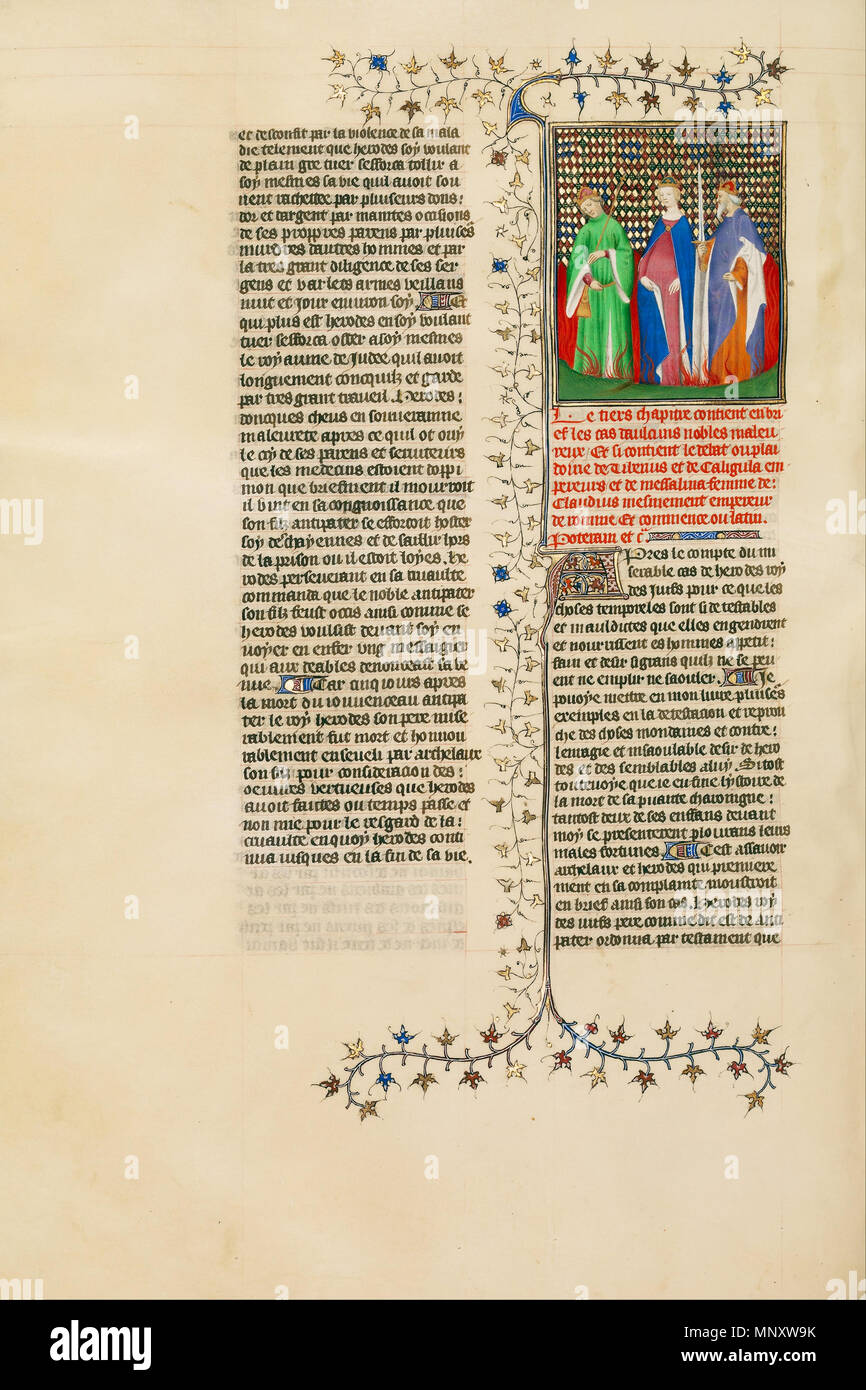 et desconfit par la violence de sa mala
die telement que herodes soy voulant
de plain gre tuer sefforca tollir a
soy mesmes sa vie quil avoit sou
nent rachettee par pluiseurs dons:
dor et dargent par maintes occisions
de ses proppres parens par pluiseꝰ
murdres dautres hommes et par
la tres grant diligence de ses ser
gens et varlets armes veillans
nuit et jour environ soy. Et
qui plus est herodes en soy voulant
tuer sefforca oster a soy mesmes
le royaume de Judee quil avoit
longuement concquis et garde
par tres grant traveil. Herodes:
doncques cheus en souveraine
maleurete apres ce quil ot ouy
le cry de ses parens et serviteurs
que les medecins estoient doppi
nion que briefment il mourroit
il vint en sa congnoissance que
son filz antipater se efforcoit hoster
soy de chayennes et de saillir hors
de la prison ou il estoit loyes. he
rodes perseverant en sa cruaulte
commanda que le noble antipater
son filz feust occis ainsi comme se
herodes voulsist devant soy en
voyer en enfer ung messaigier
qui aux deables denonceast sa ve
nue. Car cinq jours apres
la mort du jouvenceau antipa
ter le roy herodes son pere mise
rablement fut mort et honnou
rablement enseveli par archelaux
son filz pour consideracion des:
oeuvres vertueuses que herodes
avoit faittes ou temps passe et
non mie pour le resgard de la:
cruaulte en quoy herodes conti
nua jusques en la fin de sa vie.
Le tiers chapitre contient en bri
ef les cas daulcuns nobles maleu
reux Et si contient le debat ou plai
doirie de Tiberius et de Caligula em
pereurs et de messalina femme de:
Claudius mesmement empereur
de romme Et commence ou latin.
Poteram et cͣ.
Apres le compte du mi
serable cas de herodes roy
des juifs pour ce que les
choses temporeles sont si detestables
et mauldictes que elles engendrent
et nourrissent es hommes appetit:
faim et desir si grans quilz ne se peu
ent ne emplir ne saouler. Je
povoye mettre en mon livre pluiseꝰ
exemples en la detestacion et reprou
che des choses mondaines et contre:
lemagie et insaoulable desir de hero
des et des semblables a luy. Si tost
toutevoye que je eu fine lystoire de
la mort de sa puante charoingne:
tantost deux de ses enffans devant
moy se presenterent plourans leurs
males fortunes. Cest assavoir
archelaux et herodes qui premiere
ment en sa complainte moustroit
en brief ainsi son cas. Herodes roy
des juifs pere comme dit est de anti
pater ordonna par testament que
alamy
Image ID: MNXW9K
www.alamy.com